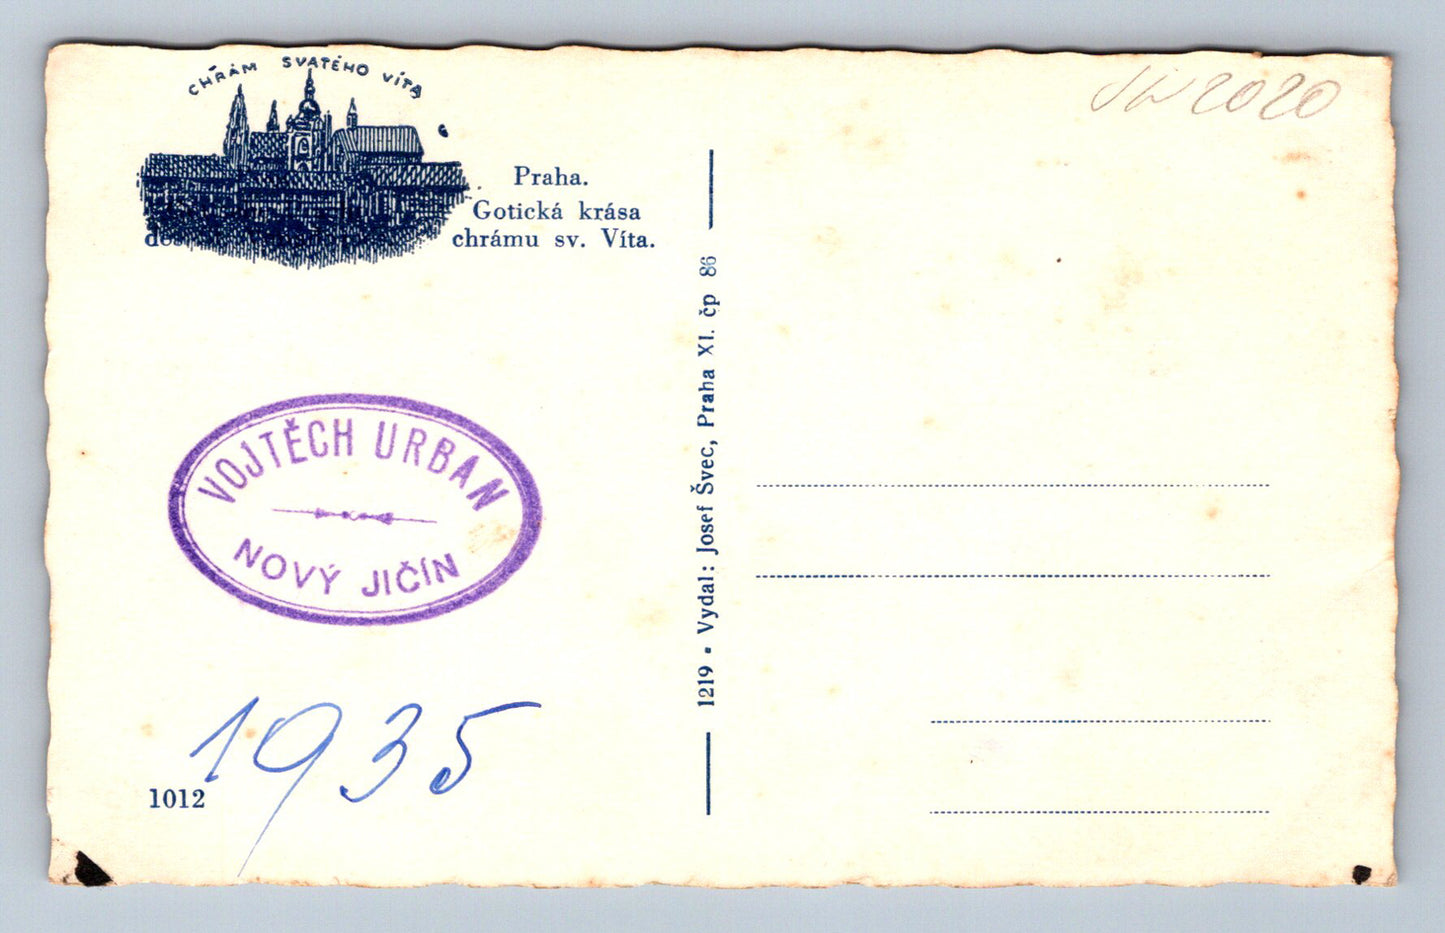 CHRÁM SVATÉHO VÍTA
Praha.
Gotická krása
chrámu sv. Víta.
VOJTĚCH URBAN
NOVÝ JIČÍN
1935
1012
1219 - Vydal: Josef Švec, Praha XI. čp 86
2020